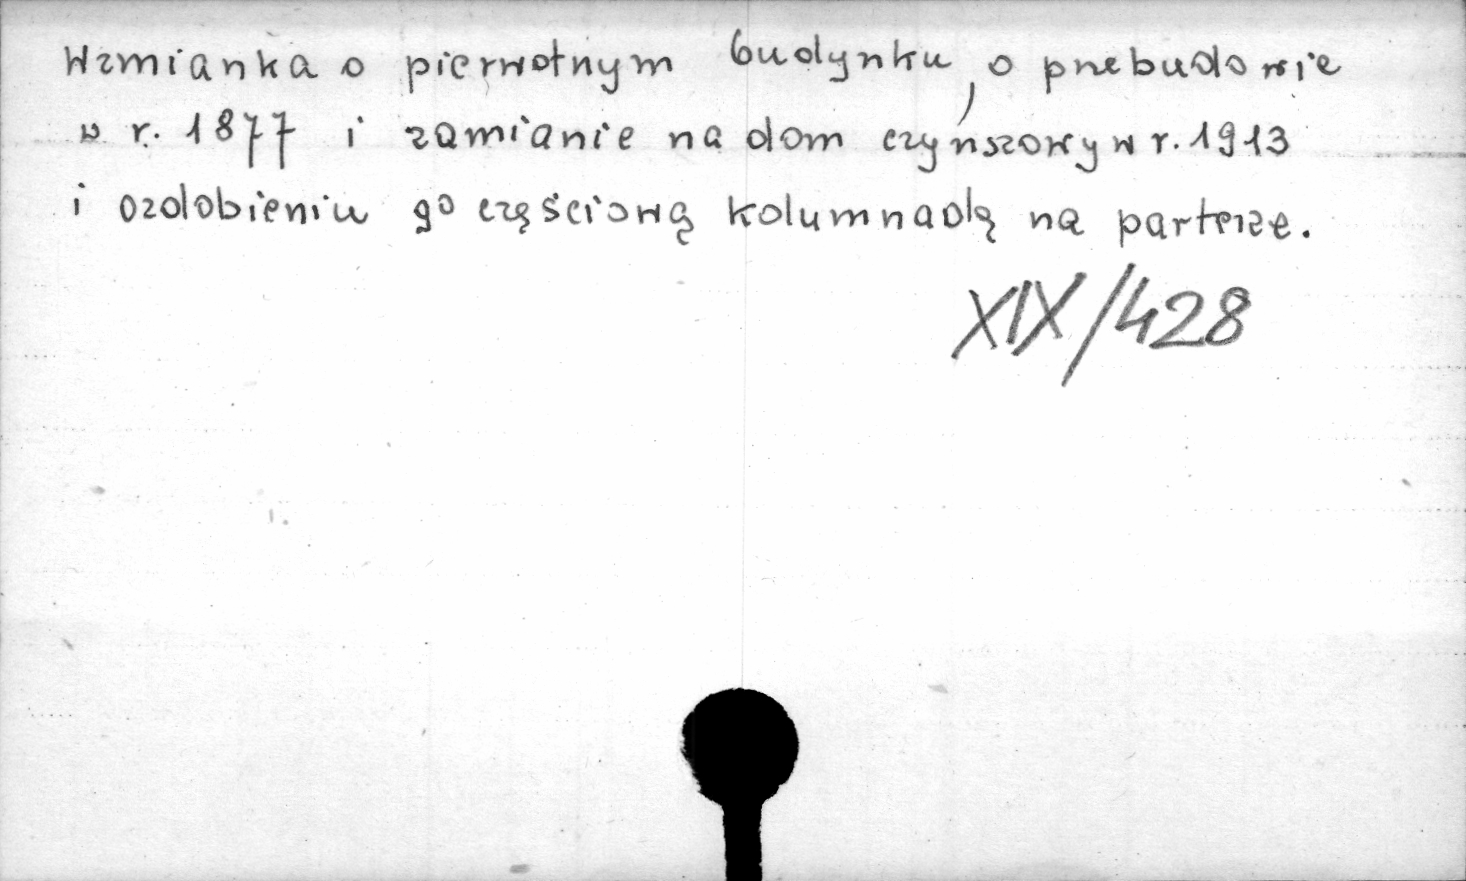 Wzmianka o pierwotnym budynku, o przebudowie
w r. 1877 i zamianie na dom czynszowy w r. 1913
i ozdobieniu go częściową kolumnadą na parterze.
XIX/428